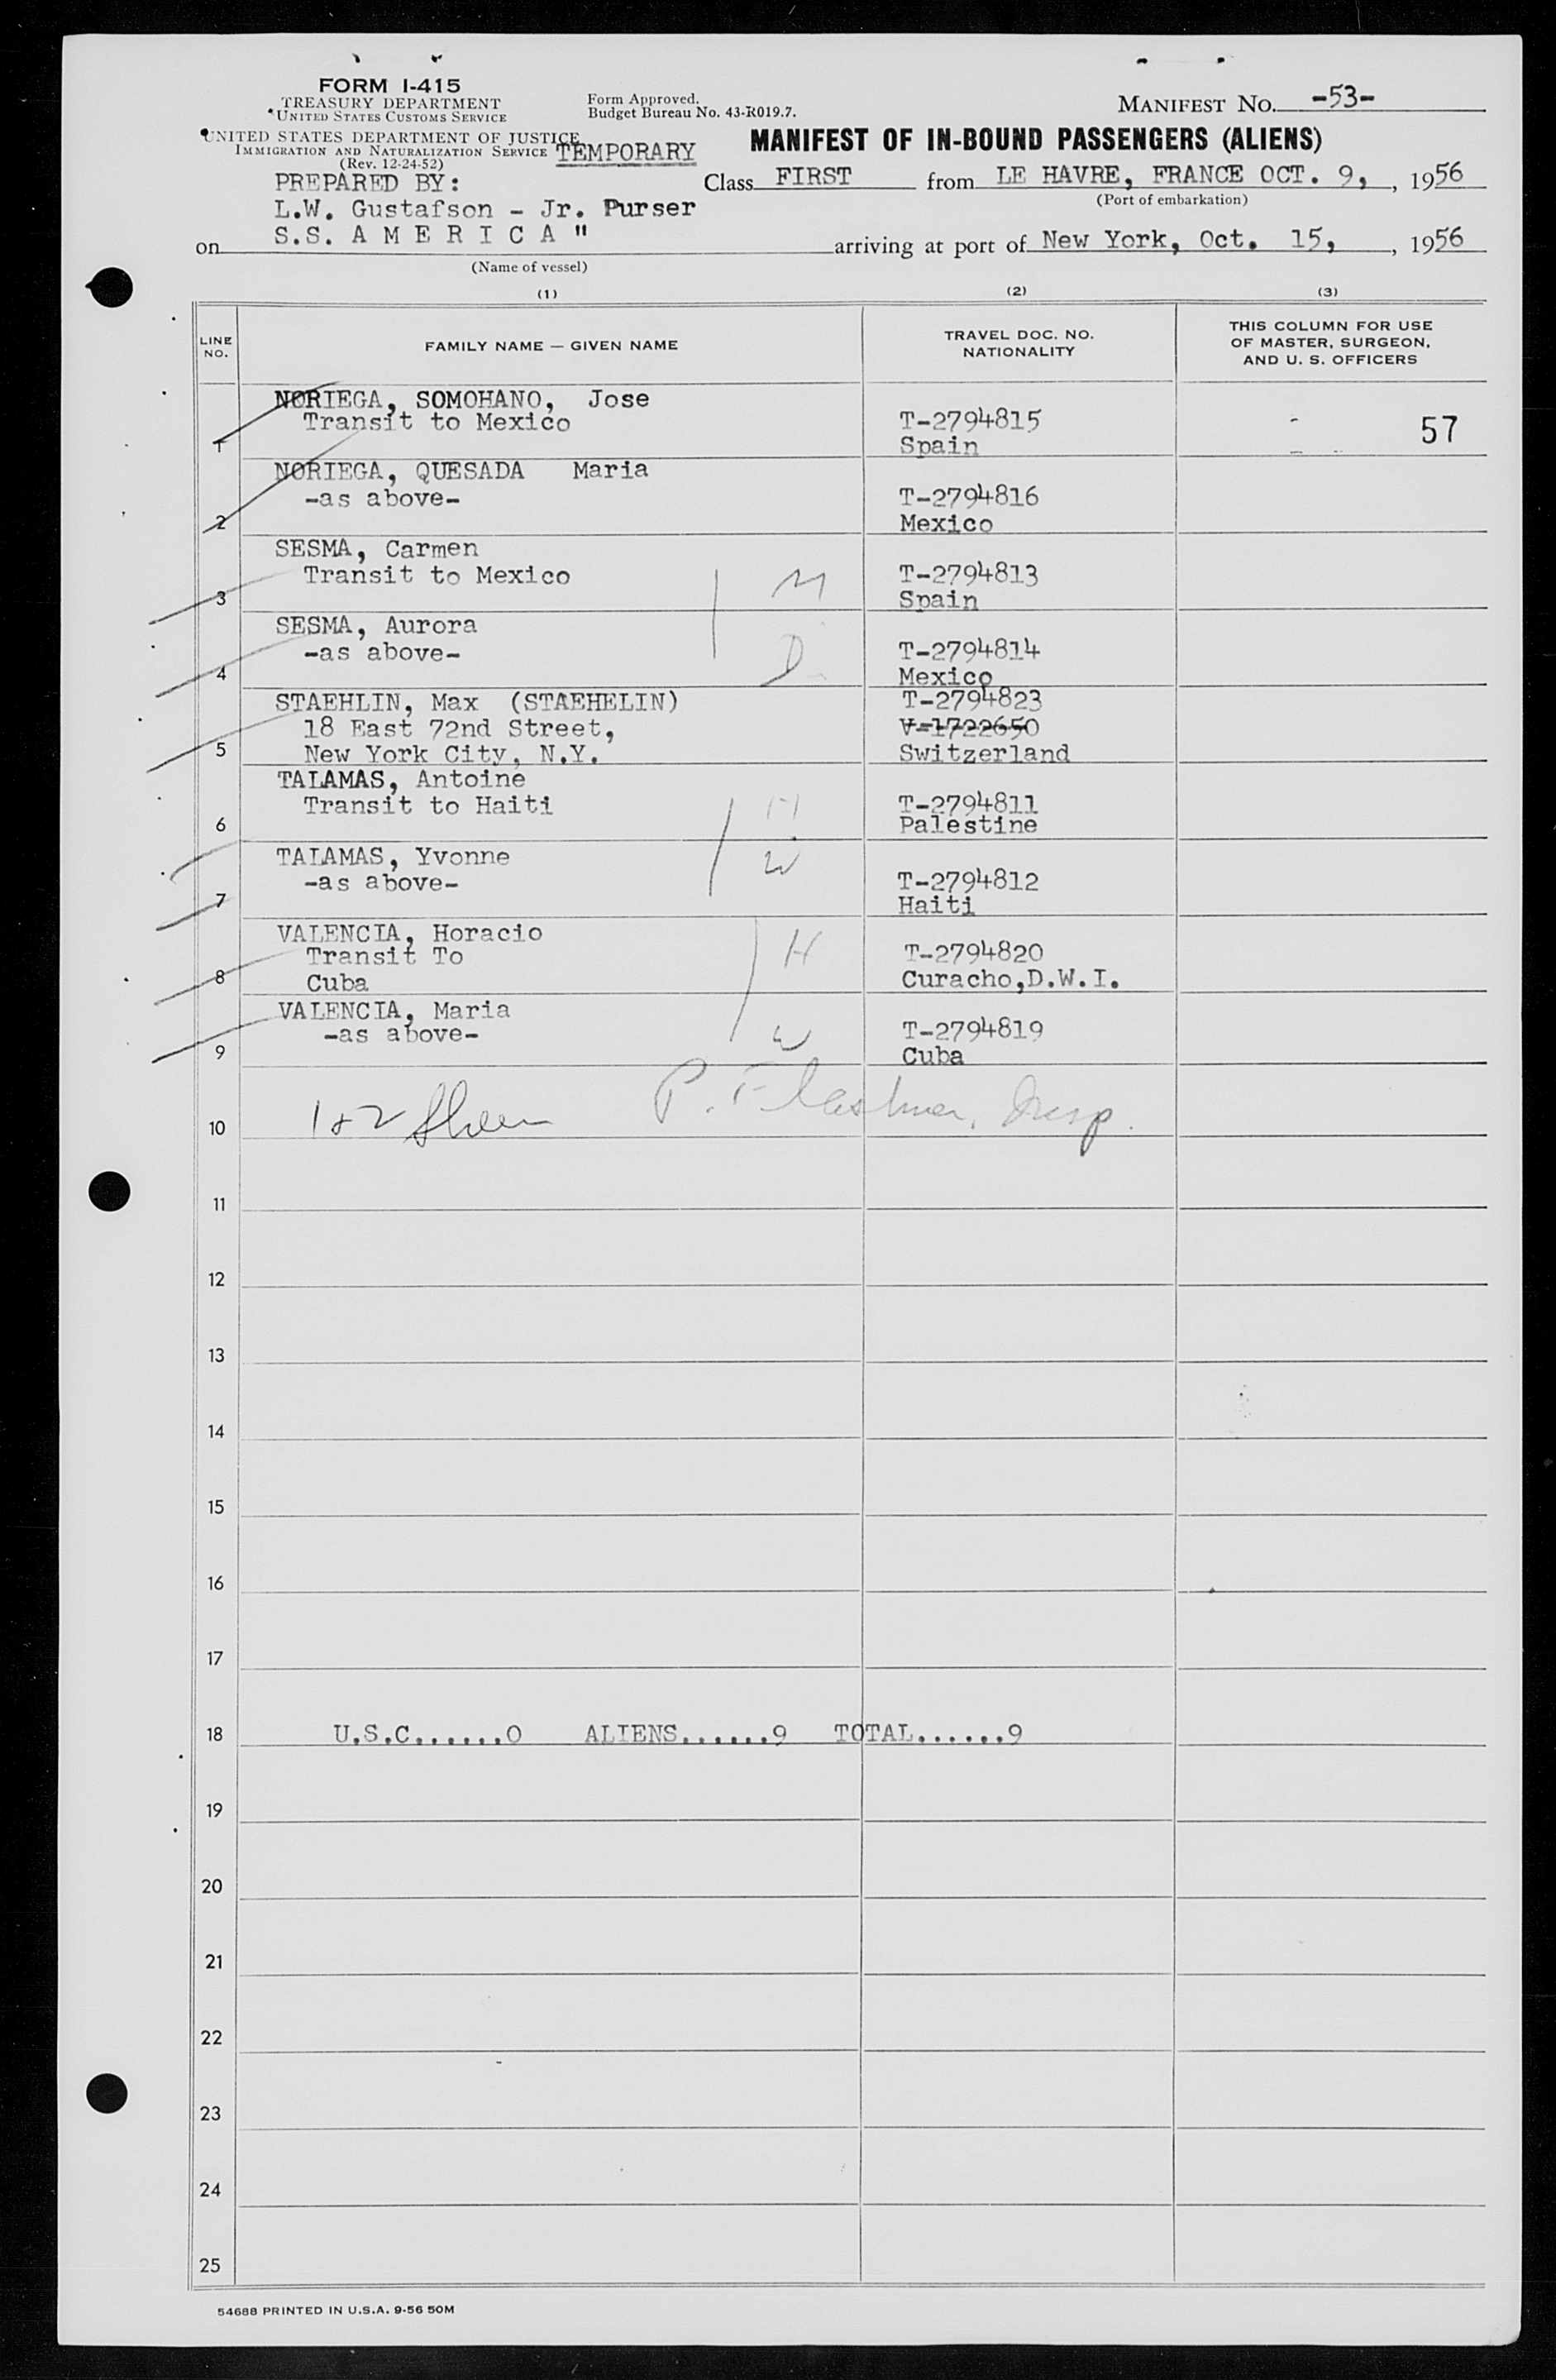 FORM I-415
TREASURY DEPARTMENT
UNITED STATES CUSTOMS SERVICE
UNITED STATES DEPARTMENT OF JUSTICE
IMMIGRATION AND NATURALIZATION SERVICE
(Rev. 12-24-52)
TEMPORARY
Form Approved.
Budget Bureau No. 43-R019.7.
MANIFEST NO. -53-
MANIFEST OF IN-BOUND PASSENGERS (ALIENS)
PREPARED BY:
L.W. Gustafson - Jr. Purser
Class FIRST from LE HAVRE, FRANCE OCT. 9, , 1956
(Port of embarkation)
on S.S. A M E R I C A " arriving at port of New York, Oct. 15, , 1956
(Name of vessel)
(1) (2) (3)
LINE NO.
FAMILY NAME — GIVEN NAME
TRAVEL DOC. NO.
NATIONALITY
THIS COLUMN FOR USE
OF MASTER, SURGEON,
AND U. S. OFFICERS
NORIEGA, SOMOHANO, Jose
1 Transit to Mexico T-2794815 57
Spain
NORIEGA, QUESADA Maria
2 -as above- T-2794816
Mexico
SESMA, Carmen
3 Transit to Mexico M T-2794813
Spain
SESMA, Aurora
4 -as above- D T-2794814
Mexico
STAEHLIN, Max (STAEHELIN) T-2794823
18 East 72nd Street, V-1722650
5 New York City, N.Y. Switzerland
TALAMAS, Antoine
6 Transit to Haiti H T-2794811
Palestine
TALAMAS, Yvonne W
7 -as above- T-2794812
Haiti
VALENCIA, Horacio H
8 Transit To T-2794820
Cuba Curacho,D.W.I.
VALENCIA, Maria
9 -as above- W T-2794819
Cuba
10 1+2 P. Insp.
11
12
13
14
15
16
17
18 U.S.C......0 ALIENS......9 TOTAL......9
19
20
21
22
23
24
25
54688 PRINTED IN U.S.A. 9-56 50M